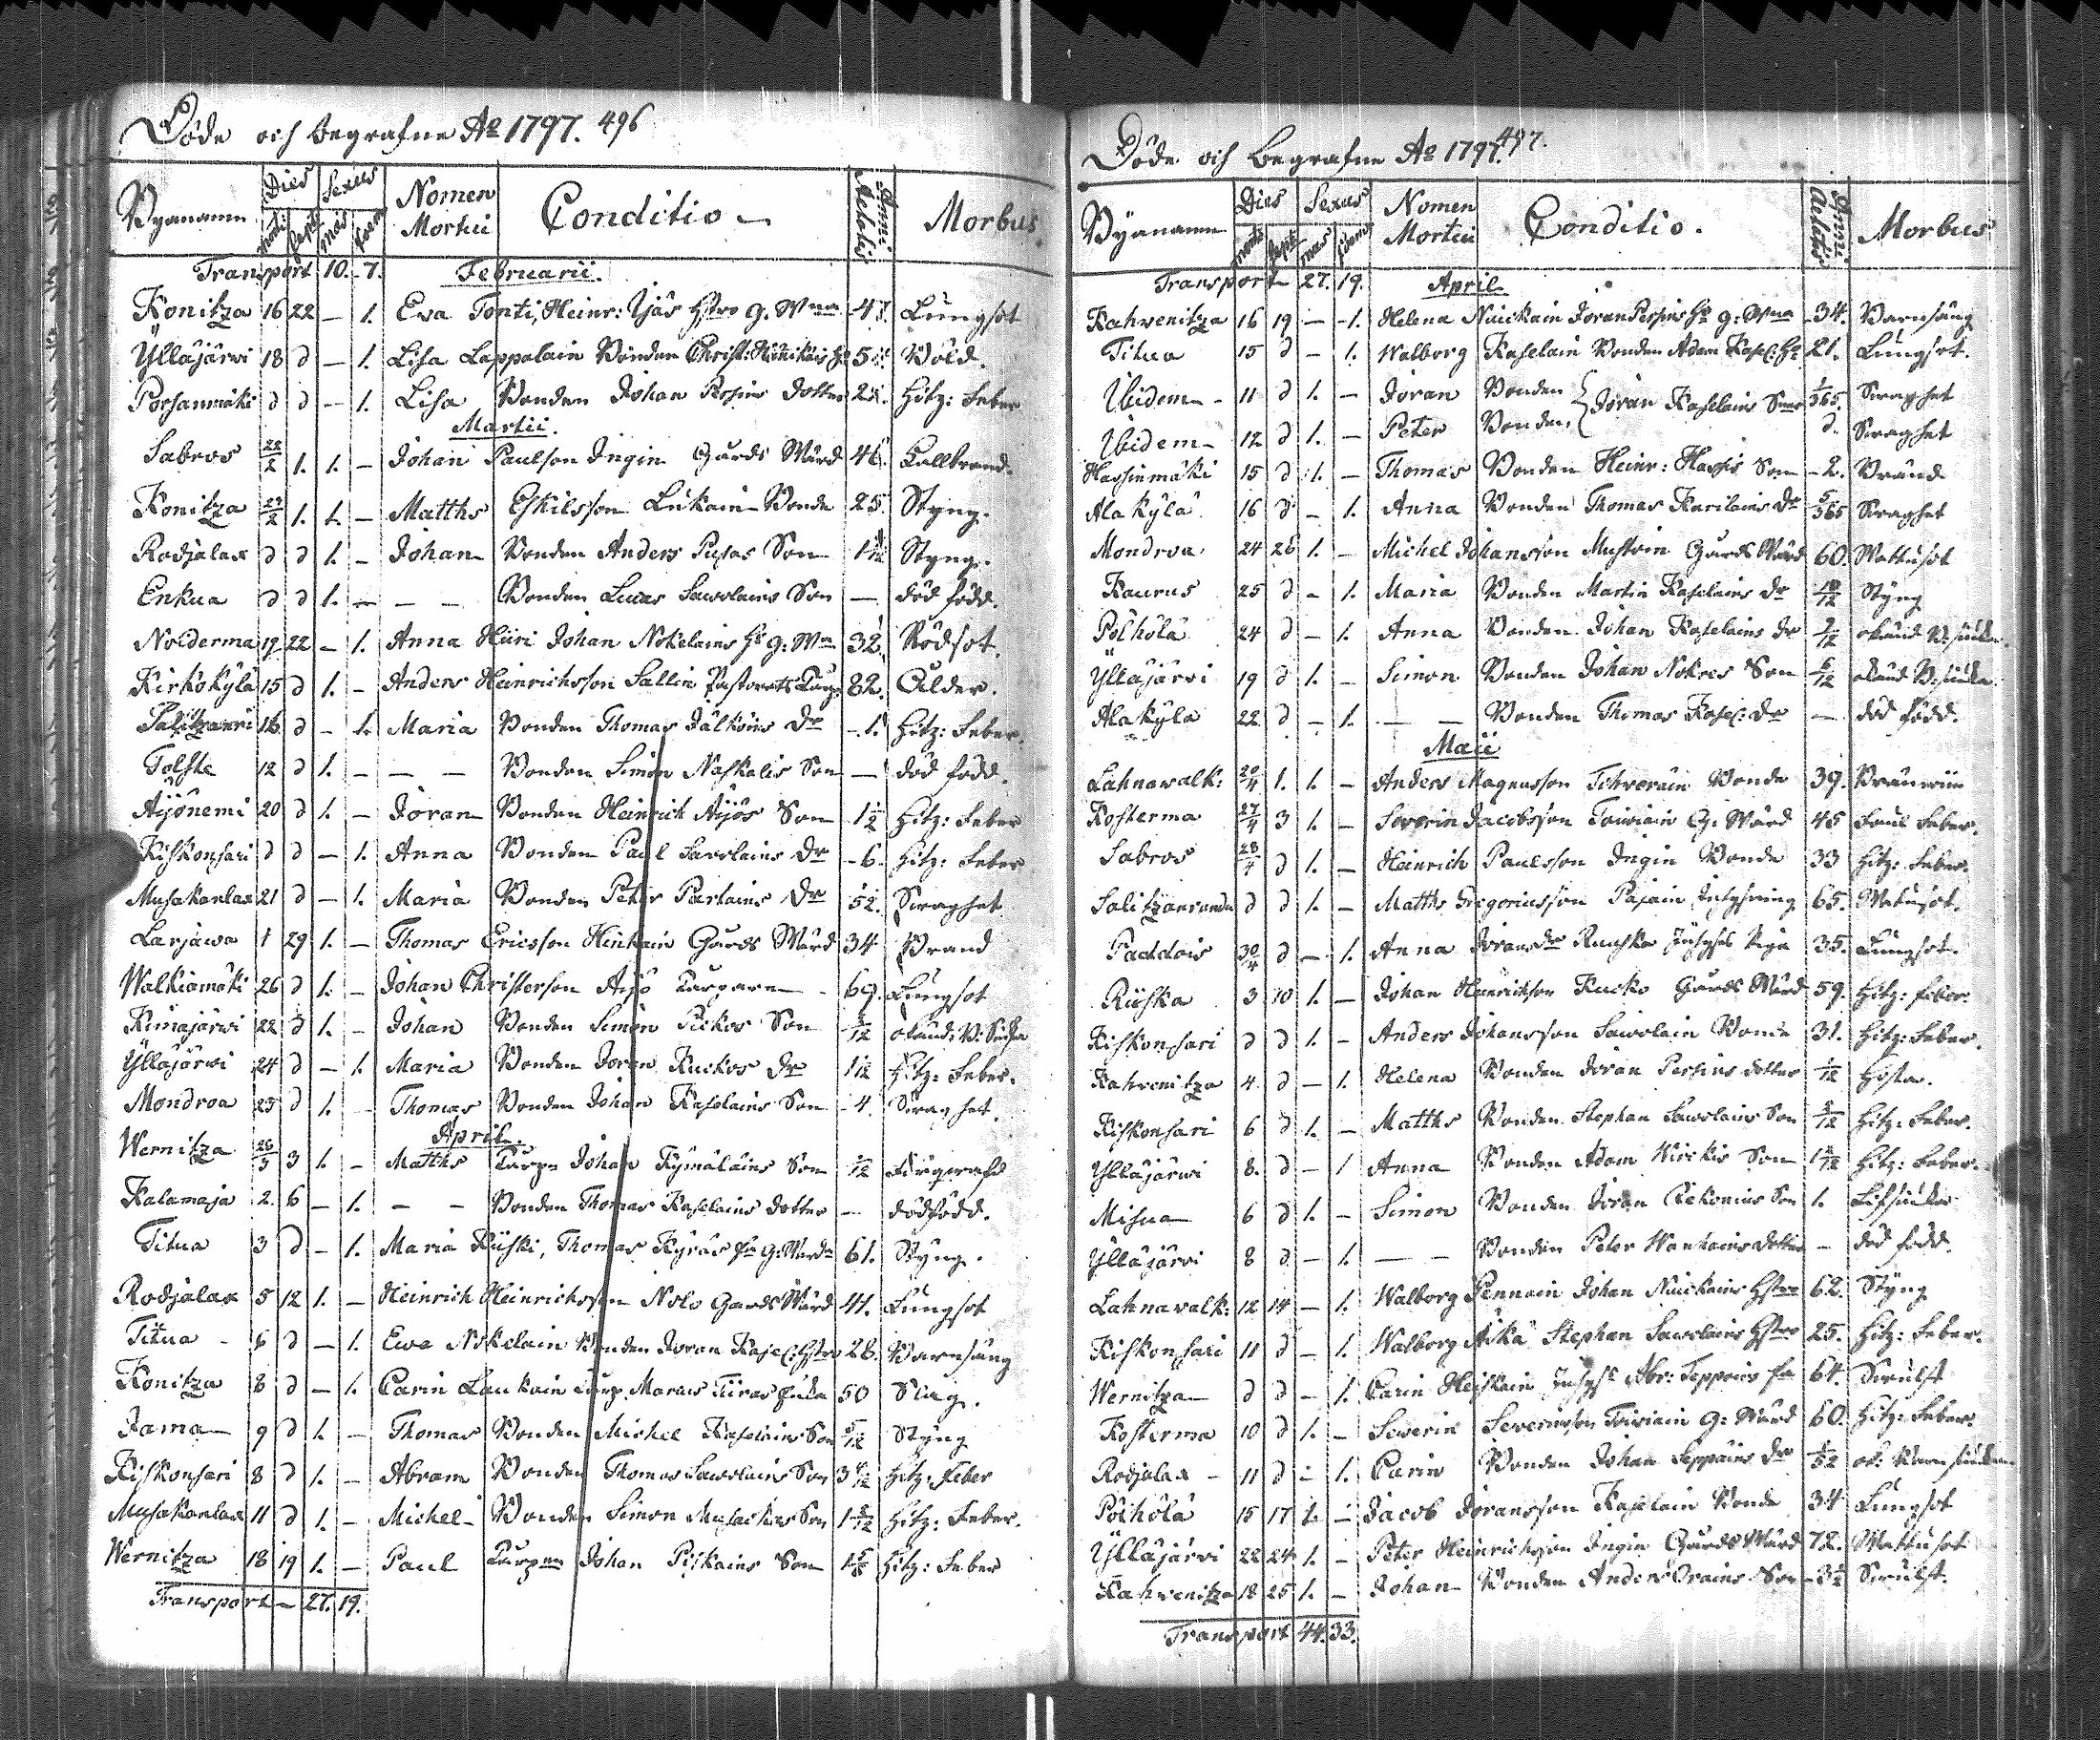 Döde och begrafne Ao 1797. 496
Bynamn Dies Sexus Nomen Mortui Conditio Anni Aetatis Morbus
morti sepult mas foem
Transport 10. 7. Februarii.
Konitza 16 22 — 1. Eva Tonti, Heinr: Ijäs Hstro g. Wna 47. Lungsot
Ylläjärvi 18 d — 1. Lisa Lappalain Bonden Christ: Hstro 5 Våld.
Porsanmäki d d — 1. Lisa Bonden Johan Persins dotter 2 Hitz: Feber
Martii.
Sabros 22/2 1. 1. — Johan Paulson Ingin Gårds Wärd 46. Kallbrand.
Konitza 23/2 1. 1. — Matths Eskilsson Liukain Bonde 25. Styng.
Rodjalax d d 1. — Johan Bonden Anders Puxas Son Styng.
Enkua d d 1. — — — Bonden Lucas Sawolains Son — död född.
Noiderma 19 22 — 1. Anna Hüri Johan Nokelains Hs g. Wna 32. Rödsot.
Kirkokylä 15 d 1. — Anders Heinrichsson Sallin Pastorats 82. Ålder.
16. d — 1. Maria Bonden Thomas Jälköins Dr 1. Hitz: Feber.
Tolste 12 d 1. — — — Bonden Simon Naskalis Son — död född.
Äijönemi 20 d 1. — Jöran Bonden Heinrich Äijös Son 1 1/2 Hitz: Feber
Kiskonsari d d — 1. Anna Bonden Paul Sawolains Dr 6. Hitz: Feber
Musakanlax 21 d — 1. Maria Bonden Peter Partains Dr 52. Swaghet
Larjawa 1 29 1. — Thomas Ericsson Hinkain Gårds Wärd 34 Brand
Walkiamäki 26 d 1. — Johan Christerson Äijö 69. Lungsot
Kimajärwi 22 d 1. — Johan Bonden Simon Puckos Son 1/12
Ylläjärwi 24 d — 1. Maria Bonden Jöran Kuckos Dr 1 1/12 Hitz: Feber.
Mondroa 25 d 1. — Thomas Bonden Johan Kaselains Son 4. Swaghet.
April.
Wernitza 26/3 3 1. — Matths Johan Kymäläins Son 1/12
Kalamaja 2. 6 — 1. — — Bonden Thomas Kaselains dotter — dödfödd.
Titua 3 d — 1. Maria Rüski, Thomas Kyräs g: 61. Styng.
Rodjalax 5 12 1. — Heinrich Heinrichsson Nolo Gårds Wärd 41. Lungsot
Titua 6 d — 1. Ewa Nokelain Bonden Jöran Kasel: Hstro 28. Barnsäng
Konitza 8 d — 1. Carin Laukain Marcus Türas Enka 50 Slag.
Jama 9 d 1. — Thomas Bonden Michel Kaselains Son 5/12 Styng
Kiskonsari 8 d 1. — Abram Bonden Thomas Sawolains Son 3 Hitz: Feber
Musakanlax 11 d 1. — Michel Bonden Simon Musackas Son 1 Hitz: Feber.
Wernitza 18 19 1. — Paul Johan Piskains Son 1 Hitz: Feber
Transport — 27. 19.
Döde och Begrafne Ao 1797. 497.
Bynamn Dies Sexus Nomen Mortui Conditio. Anni Aetatis Morbus
Transport 27. 19. April
Kahwenitza 16 19 — 1. Helena Nuickain Jöran Persins Hs g: Wna 34. Barnsäng
Titua 15 d — 1. Walborg Kaselain Bonden Adam Kasel: Hs 21. Lungsot.
Ibidem 11 d 1. — Jöran Bonden Jöran Kaselains Söner 1/365. Swaghet
Ibidem 12 d 1. — Peter Bonden, d. Swaghet
Hassinmäki 15 d 1. — Thomas Bonden Heinr: Hassis Son 2. Bränd
Alakylä 16 d — 1. Anna Bonden Thomas Karilains Dr 5/365 Swaghet
Mondroa 24 26 1. — Michel Johansson Mustoin Gårds Wärd 60. Wattusot
Kaurus 25 d — 1. Maria Bonden Martin Kaselains Dr 10/12 Styng
Pölhölä 24 d — 1. Anna Bonden Johan Kaselains Dr
Ylläjärvi 19 d 1. — Simon Bonden Johan Nokres Son 6/12
Alakylä 22 d — 1. — — Bonden Thomas Kasel: Dr — död född.
Maii
Lahnawalk: 20/4 1. 1. — Anders Magnusson Tchwerain Bonde 39.
Kosterma 27/4 3 1. — Severin Jacobsson Toiviain G: Wärd 45 Feber.
Sabros 28/4 d 1. — Heinrich Paulsson Ingin Bonde 33 Hitz: Feber.
Salitzanranda d d 1. — Matths Gregoriusson Pasain 65. Wattusot.
Paddois 30/4 d — 1. Anna Jöransdr Ruuska Piga 35. Lungsot.
Rüska 3 10 1. — Johan Heinrichson Kucko Gårds Wärd 59. Hitz: feber.
Kiskonsari d d 1. — Anders Johansson Sawolain Bonde 31. Hitz: Feber.
Kahwenitza 4. d — 1. Helena Bonden Jöran Persins dotter 1/12 Hosta.
Kiskonsari 6 d 1. — Matths Bonden Stephan Sawolains Son Hitz: Feber.
Ylläjärwi 8. d — 1 Anna Bonden Adam Kirckis Son 1 Hitz: Feber.
Misua 6 d 1. — Simon Bonden Jöran Son 1.
Ylläjärvi 8 d — 1. — — Bonden Peter Wanhains dotter — död född.
Lahnawalk: 12 14 — 1. Walborg Pennain Johan Nuickains Hstro 62. Styng
Kiskonsari 11 d — 1. Walborg Äikä Stephan Sawolains Hstro 25. Hitz: Feber.
Wernitza d d — 1. Carin Heiskain Abr: Seppoins 64. Swulst
Kosterma 10 d 1. — Severin Severinsson Toiviain g: Wärd 60. Hitz: Feber.
Rodjalax 11 d — 1. Carin Bonden Johan Seppäins Dr 1/52
Pölhölä 15 17 1. — Jacob Jöransson Kaselain Bonde 34 Lungsot
Ylläjärvi 22 24 1. — Peter Heinrichsson Ingin Gårds Wärd 72. Wattusot
Kahwenitza 18 25 1. — Johan Bonden Anders Orains Son 3 1/2 Swulst.
Transport 44. 33.